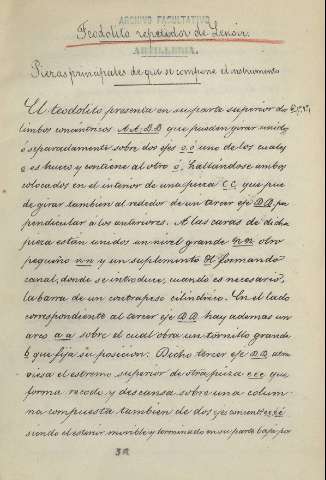 ARCHIVO FACULTATIVO
Teodolito repetidor de Lenoir.
ARTILLERIA.
Piezas principales de que se compone el instrumento
El teodolito presenta en su parte superior dos
limbos concéntricos A A, B B que pueden girar unidos
ó separadamente sobre dos ejes o, ó uno de los cuales
o es hueco y contiene al otro ó, hallándose ambos
colocados en el interior de una pieza C C, que pue
de girar tambien al rededor de un tercer eje D D, per
pendicular á los anteriores. A las caras de dicha
pieza están unidos un nivel grande n n otro
pequeño n n y un suplemento H formando
canal, donde se introduce, cuando es necesario,
la barra de un contrapeso cilíndrico. En el lado
correspondiente al tercer eje D D, hay ademas un
arco a a sobre el cual obra un tornillo grande
b que fija su posicion. Dicho tercer eje D D atra
viesa el estremo superior de otra pieza c c c que
forma recodo y descansa sobre una colum
na compuesta tambien de dos ejes concéntricos
siendo el esterior movible y terminado en su parte baja po